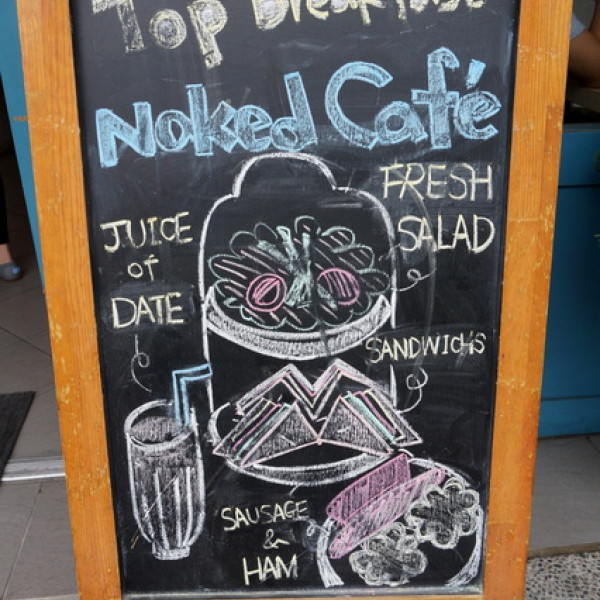 Top Breakfast
Noked Café
FRESH
SALAD
JUICE
of
DATE
SANDWICH'S
SAUSAGE
&
HAM